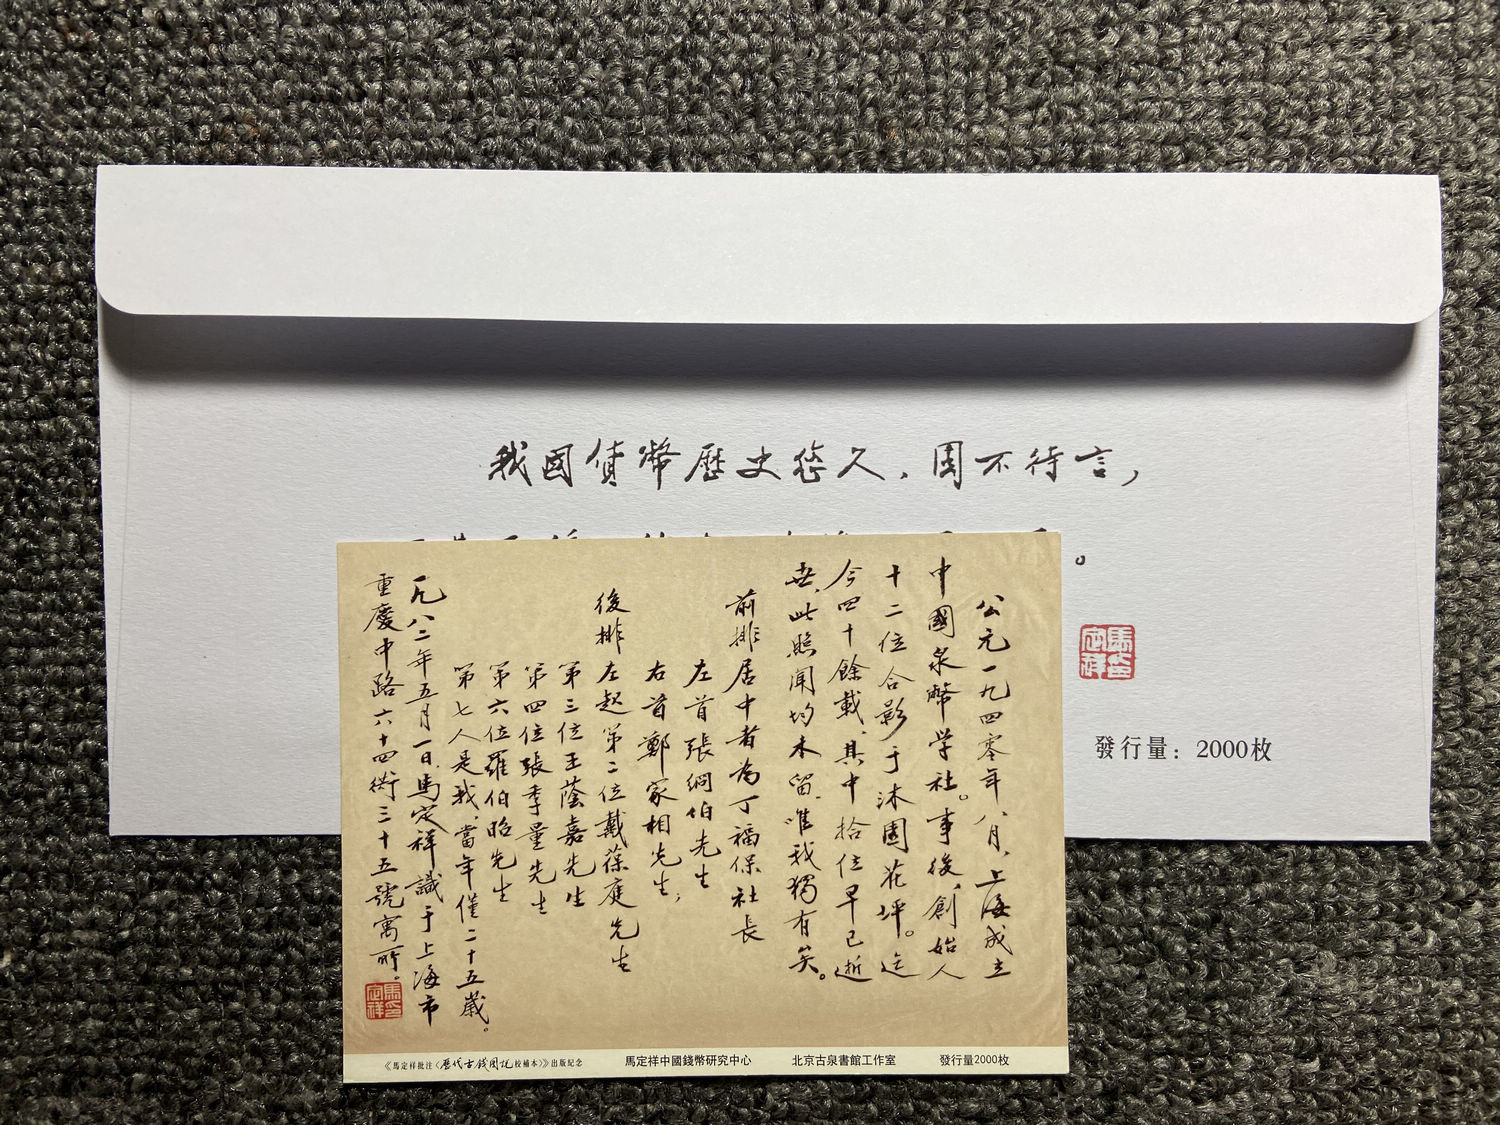 我國貨幣歷史悠久，固不待言，
發行量：2000枚
馬定祥印
公元一九四零年八月，上海成立
中國泉幣学社。事後，創始人
十二位合影于沐園花坪。迄
今四十餘載，其中拾位早已逝
世，此照聞均未留，惟我獨有矣。
前排居中者為丁福保社長
左首張絅伯先生
右首鄭家相先生；
後排左起第二位戴葆庭先生
第三位王蔭嘉先生
第四位張季量先生
第六位羅伯昭先生
第七人是我，當年僅二十五歲。
一九八二年五月一日，馬定祥識于上海市
重慶中路六十四衖三十五號寓所。
馬定祥印
《馬定祥批注〈歷代古錢圖說校補本〉》出版紀念 馬定祥中國錢幣研究中心 北京古泉書館工作室 發行量2000枚